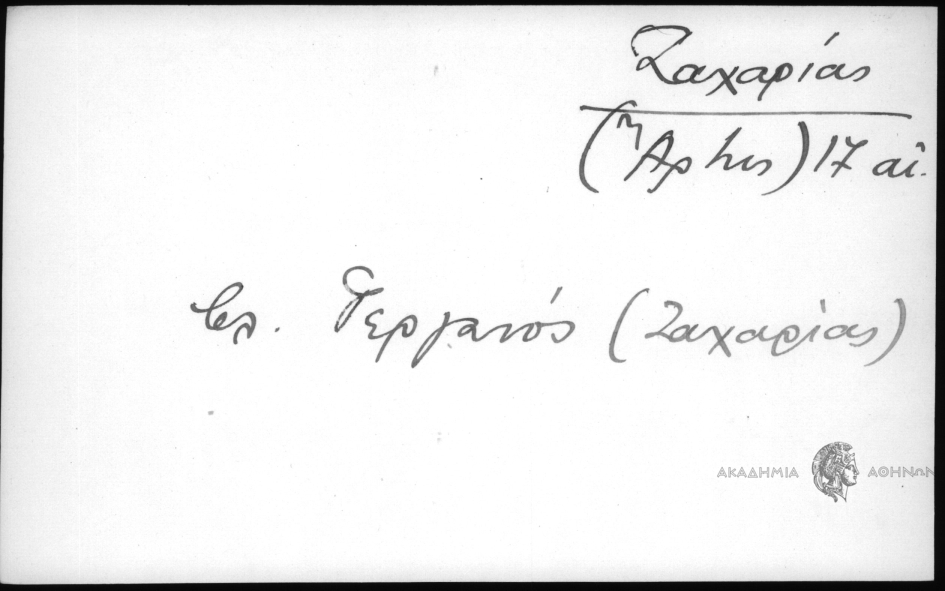 Ζαχαρίας
(Ἄρτης) 17 αἰ.
βλ. Γεργανός (Ζαχαρίας)
ΑΚΑΔΗΜΙΑ ΑΘΗΝΩΝ